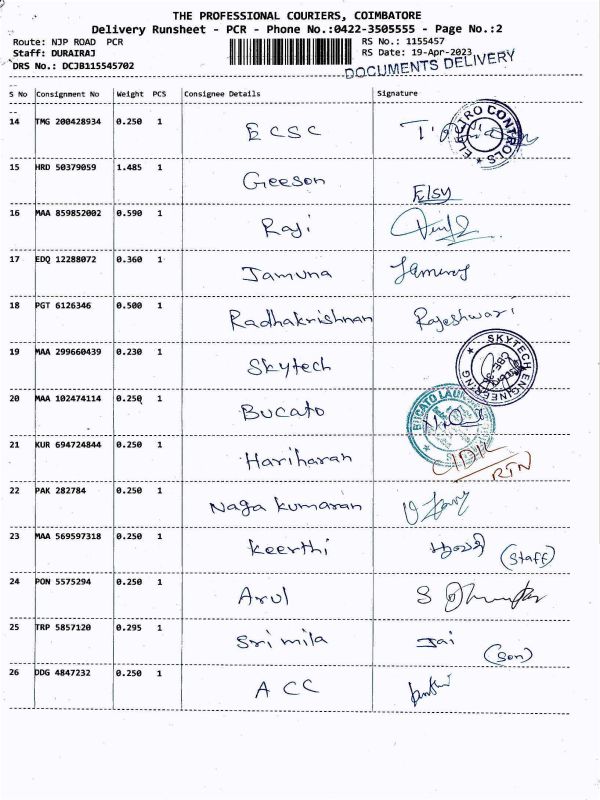 THE PROFESSIONAL COURIERS, COIMBATORE
Delivery Runsheet - PCR - Phone No.:0422-3505555 - Page No.:2
Route: NJP ROAD PCR RS No.: 1155457
Staff: DURAIRAJ RS Date: 19-Apr-2023
DRS No.: DCJB115545702 DOCUMENTS DELIVERY
S No Consignment No Weight PCS Consignee Details Signature
14 TMG 200428934 0.250 1 ECSC ELECTRO CONTROLS
15 HRD 50379059 1.485 1 Geeson Elsy
16 MAA 859852002 0.590 1 Raji
17 EDQ 12288072 0.360 1 Jamuna
18 PGT 6126346 0.500 1 Radhakrishnan Rajeshwari
19 MAA 299660439 0.230 1 Skytech SKYTECH ENGINEERING
20 MAA 102474114 0.250 1 Bucato BUCATO
21 KUR 694724844 0.250 1 Hariharan RTN
22 PAK 282784 0.250 1 Naga kumaran
23 MAA 569597318 0.250 1 Keerthi (Staff)
24 PON 5575294 0.250 1 Arul
25 TRP 5857120 0.295 1 Srimila Jai (Son)
26 DDG 4847232 0.250 1 ACC